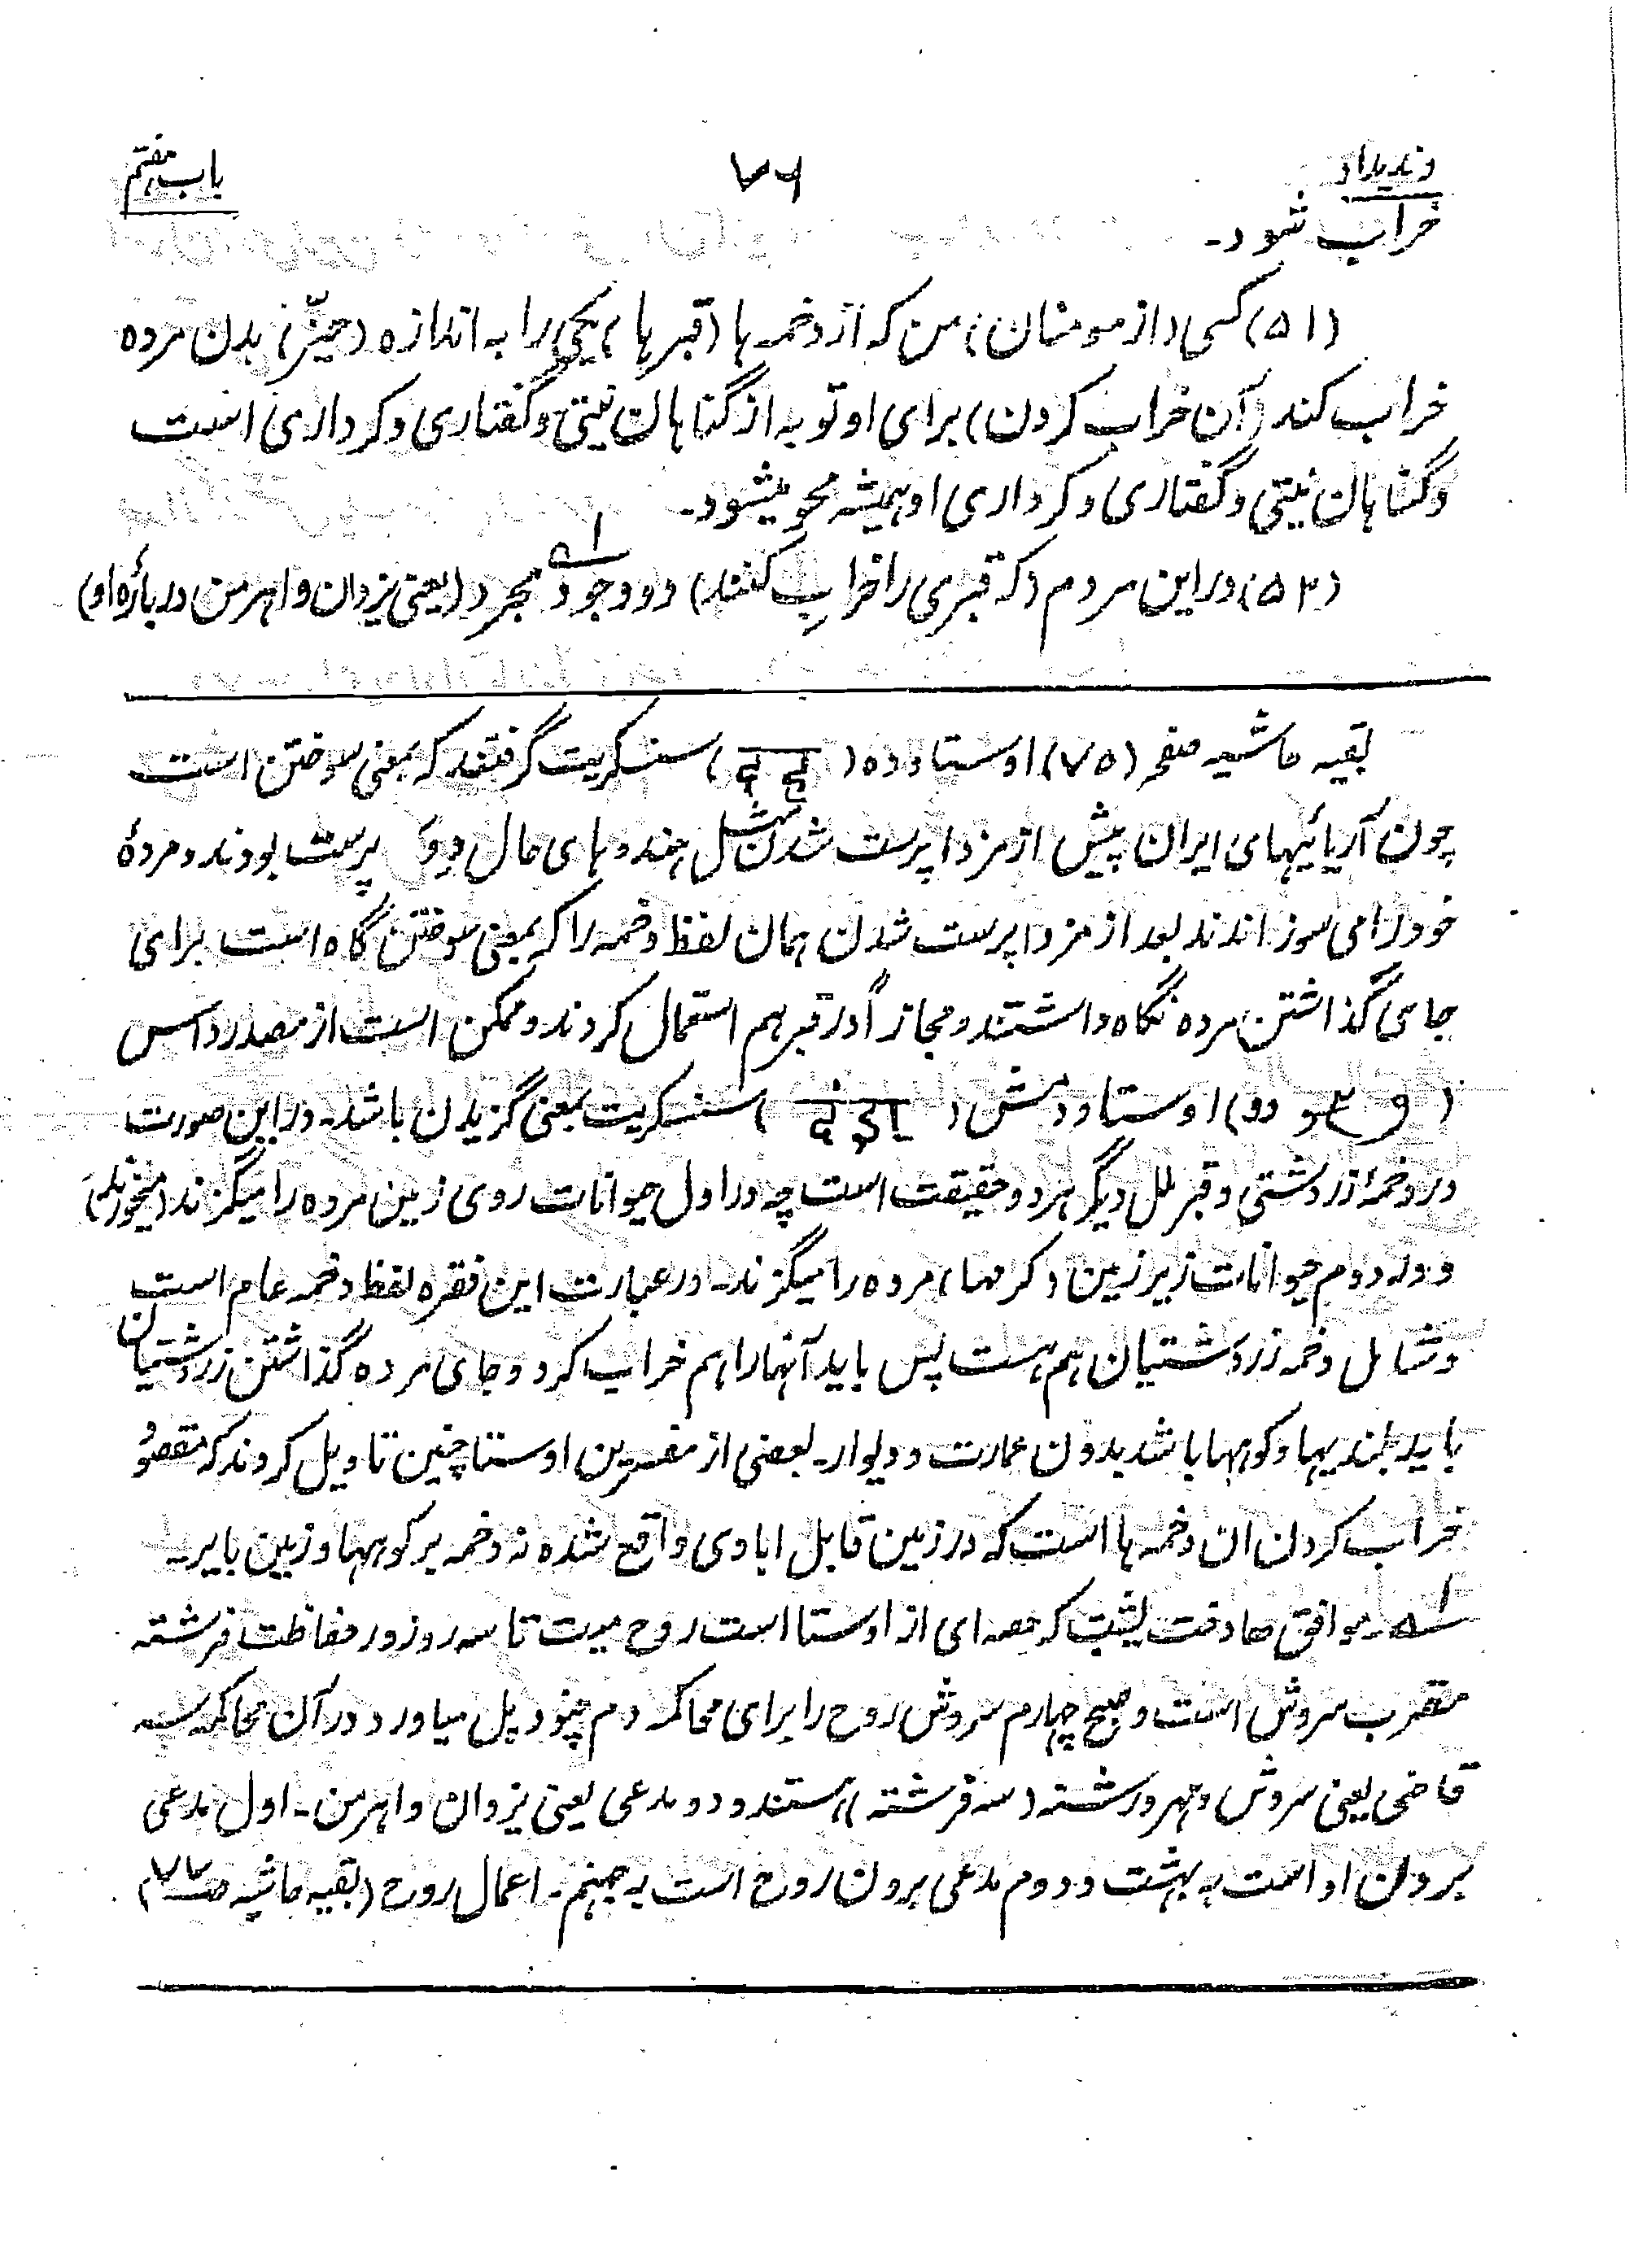 وندیداد ۷۶ باب هفتم
خراب شود-
(۵۱) کسی (از مومنان) من که از دخمه ها (قبرها) یکی را به اندازه (حیّز) بدن مرده
خراب کند (آن خراب کردن) برای او توبه از گناهان نیتی و گفتاری و کرداری است
و گناهان نیتی و گفتاری و کرداری او همیشه محو میشود-
(۵۲) در این مردم (که قبری را خراب کنند) دو وجود مجرد (یعنی یزدان و اهرمن در بارۀ او)
بقیه حاشیه صفحه (۷۵) اوستا و ده ( ) سنسکریت گرفتند که بمعنی سوختن است
چون آریائیهای ایران پیش از مزدا پرست شدن مثل هندوهای حال دیو پرست بودند و مردۀ
خود را می سوزاندند بعد از مزدا پرست شدن همان لفظ دخمه را که بمعنی سوختن گاه است برای
جای گذاشتن مرده نگاه داشتند و مجازاً در قبر هم استعمال کردند و ممکن است از مصدر داس
( ) اوستا و دنش ( ) سنسکریت بمعنی گزیدن باشد- در این صورت
در دخمۀ زردشتی و قبر ملل دیگر هر دو حقیقت است چه در اول حیوانات روی زمین مرده را میگزند (میخورند)
و در دوم حیوانات زیر زمین (کرمها) مرده را میگزند- در عبارت این فقره لفظ دخمه عام است
و شامل دخمه زردشتیان هم هست پس باید آنها را هم خراب کرد و جای مرده گذاشتن زردشتیان
باید بلندیها و کوهها باشد بدون عمارت و دیوار- بعضی از مفسرین اوستا چنین تاویل کردند که مقصود
خراب کردن ان دخمه ها است که در زمین قابل ابادی واقع شده نه دخمه بر کوهها و زمین بایر-
۱ه موافق هادخت یشت که حصه ای از اوستا است روح میت تا سه روز در حفاظت فرشته
مقرب سروش است و صبح چهارم سروش روح را برای محاکمه دم چنود پل میاورد در آن محاکمه سه
قاضی یعنی سروش و مهر و رشنه (سه فرشته) هستند و دو مدعی یعنی یزدان و اهرمن- اول مدعی
بردن او است به بهشت و دوم مدعی بردن روح است به جهنم- اعمال روح (بقیه حاشیه صـ ۷۷)